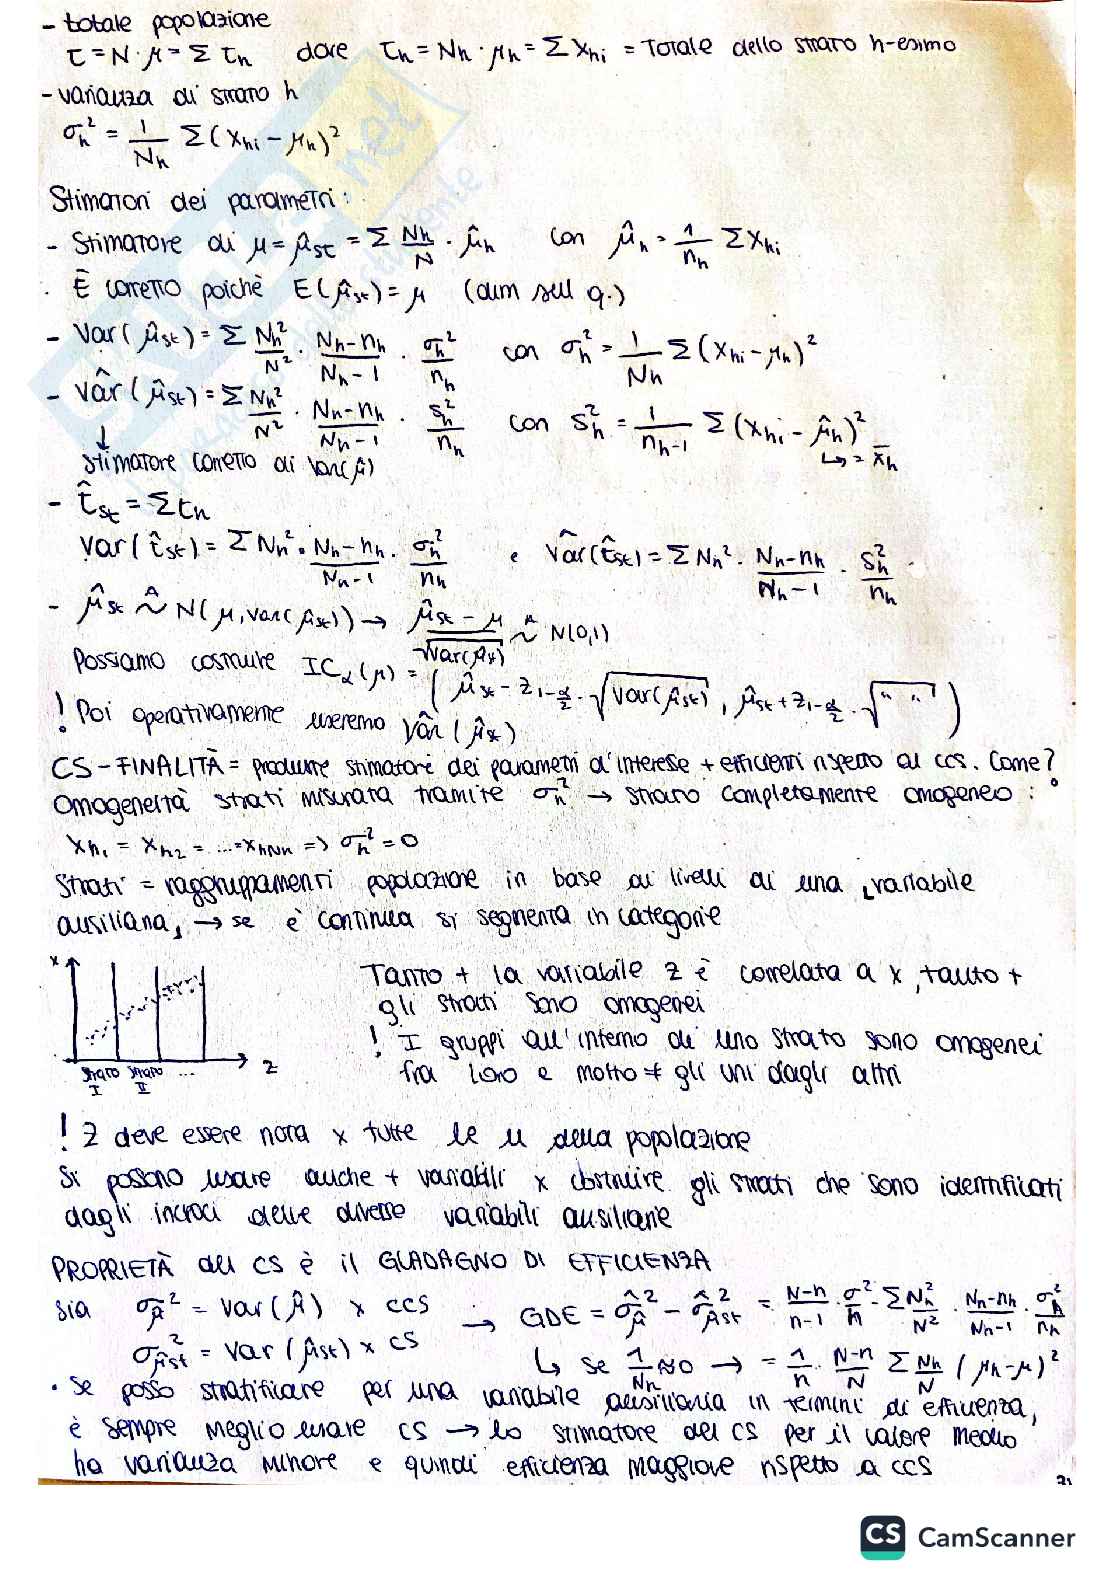 - totale popolazione
τ = N · μ = Σ τh   dove   τh = Nh · μh = Σ xhi = Totale dello strato h-esimo
- varianza di strato h
σh² = 1/Nh Σ(xhi - μh)²
Stimatori dei parametri:
- Stimatore di μ = μ̂st = Σ Nh/N · μ̂h   con   μ̂h = 1/nh Σxhi
· È corretto poichè E(μ̂st) = μ (dim sul q.)
- Var(μ̂st) = Σ Nh²/N² · Nh-nh/Nh-1 · σh²/nh   con   σh² = 1/Nh Σ(xhi - μh)²
- Vâr(μ̂st) = Σ Nh²/N² · Nh-nh/Nh-1 · Sh²/nh   con   Sh² = 1/nh-1 Σ(xhi - μ̂h)²
↳ = x̄h
↓ stimatore corretto di Var(μ̂)
- τ̂st = Στh
Var(τ̂st) = ΣNh² · Nh-nh/Nh-1 · σh²/nh   e   Vâr(τ̂st) = ΣNh² · Nh-nh/Nh-1 · Sh²/nh
- μ̂st ᴬ~ N(μ, Var(μ̂st)) → μ̂st - μ/√Var(μ̂st) ᴬ~ N(0,1)
Possiamo costruire ICα(μ) = (μ̂st - z1-α/2 · √Var(μ̂st), μ̂st + z1-α/2 · √" ")
! Poi operativamente useremo Vâr(μ̂st)
CS - FINALITÀ = produrre stimatore dei parametri d'interesse + efficienti rispetto al ccs. Come?
Omogeneità strati misurata tramite σh² → strato completamente omogeneo :
xh1 = xh2 = ... = xhNh => σh² = 0
Strati = raggruppamenti popolazione in base ai livelli di una variabile
ausiliaria, → se è continua si segmenta in categorie
x
Tanto + la variabile z è correlata a x, tanto +
gli strati sono omogenei
! I gruppi all'interno di uno strato sono omogenei
fra loro e molto ≠ gli uni dagli altri
z
strato I   strato II   ...
! Z deve essere nota x tutte le u della popolazione
Si possono usare anche + variabili x costruire gli strati che sono identificati
dagli incroci delle diverse variabili ausiliarie
PROPRIETÀ del CS è il GUADAGNO DI EFFICIENZA
Sia σμ̂² = Var(μ̂) x ccs → GDE = σ̂μ̂² - σ̂μ̂st² = N-n/n-1 · σ²/n - Σ Nh²/N² · Nh-nh/Nh-1 · σh²/nh
σμ̂st² = Var(μ̂st) x CS   ↳ se 1/Nh ≈ 0 → = 1/n · N-n/N Σ Nh/N (μh - μ)²
· Se posso stratificare per una variabile ausiliaria in termini di efficienza,
è sempre meglio usare CS → lo stimatore del CS per il valore medio
ha varianza minore e quindi efficienza maggiore rispetto a ccs
CS CamScanner